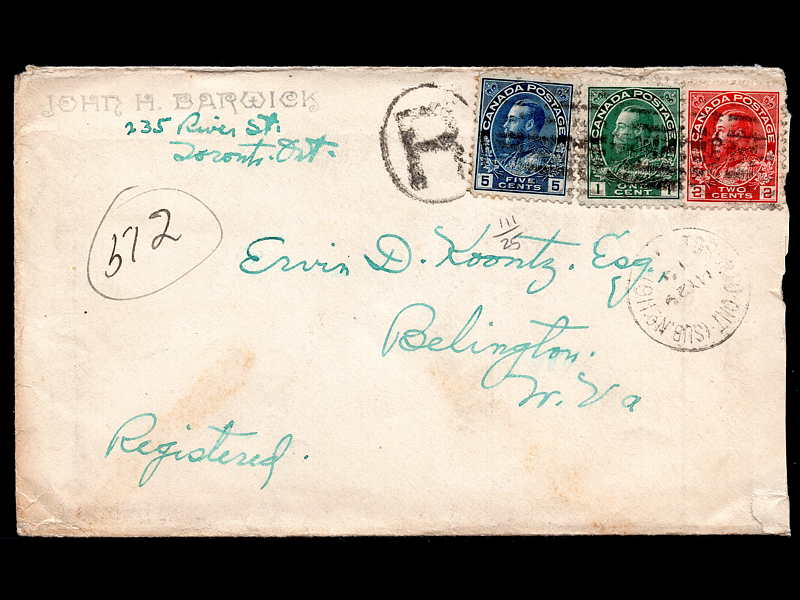 JOHN H. BARWICK
235 River St.
Toronto. Ont.
R
CANADA POSTAGE
5 FIVE CENTS 5
CANADA POSTAGE
1 ONE CENT 1
CANADA POSTAGE
2 TWO CENTS 2
572
111
25
Ervin D. Koontz. Esq.
Belington.
W. Va
Registered.
ONT (SUB. No